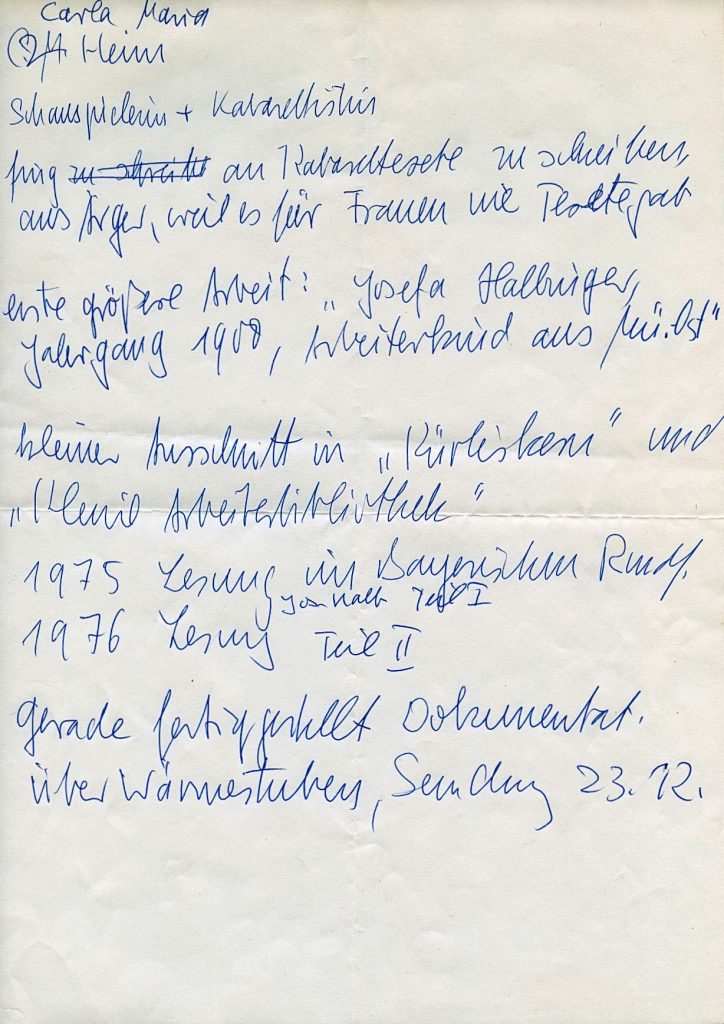 Carla Maria
Heim
Schauspielerin + Kabarettistin
fing zu schreib an Kabarettexte zu schreiben,
aus Ärger, weil es für Frauen nie Texte gab
erste größere Arbeit: „Josefa Halbinger,
Jahrgang 1900, Arbeiterkind aus Mü.Ost"
kleiner Ausschnitt in „Kürbiskern" und
„Kleine Arbeiterbibliothek"
1975 Lesung im Bayerischen Rundf.
Teil I
1976 Lesung Teil II
gerade fertiggestellt Dokumentat.
über Wärmestuben, Sendung 23.12.